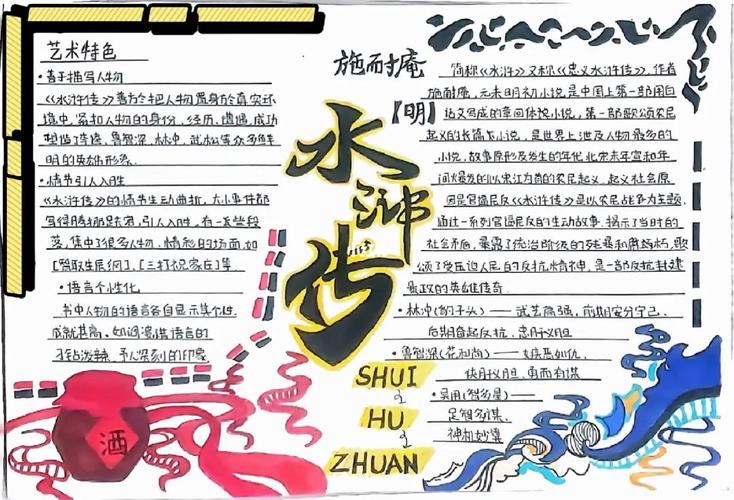 艺术特色
·善于描写人物
《水浒传》善于把人物置身于真实环
境中,紧扣人物的身份、经历、遭遇,成功
塑造了李逵、鲁智深、林冲、武松等众多鲜
明的英雄形象.
·情节引人入胜
《水浒传》的情节生动曲折,大小事件都
写得腾挪跌宕,引人入胜,有一些段
落,集中了很多人物,精彩的场面,如
[智取生辰纲]、[三打祝家庄]等
·语言个性化
书中人物的语言各自显示其个性.
成就甚高.如
语言的
刁钻泼辣,予人深刻的印象
酒
施耐庵
【明】
水浒传
SHUI
HU
ZHUAN
简称《水浒》又称《忠义水浒传》,作者
施耐庵,元末明初小说.是中国上第一部用白
话文写成的章回体小说,第一部歌颂农民
起义的长篇小说,是世界上涉及人物最多的
小说.故事原形及发生的年代北宋末年宣和年
间爆发的以宋江为首的农民起义.起义社会原
因是官逼民反《水浒传》是以农民战争为主题.
通过一系列官逼民反的生动故事.揭示了当时的
社会矛盾,暴露了统治阶级的残暴和腐朽,歌
颂了受压迫人民的反抗精神,是一部反抗封建
暴政的英雄传奇.
·林冲(豹子头)——武艺高强,前期安分守己.
后期奋起反抗、忠肝义胆
·鲁智深(花和尚)——嫉恶如仇
侠肝义胆、勇而有谋
·吴用(智多星)——
足智多谋、
神机妙算